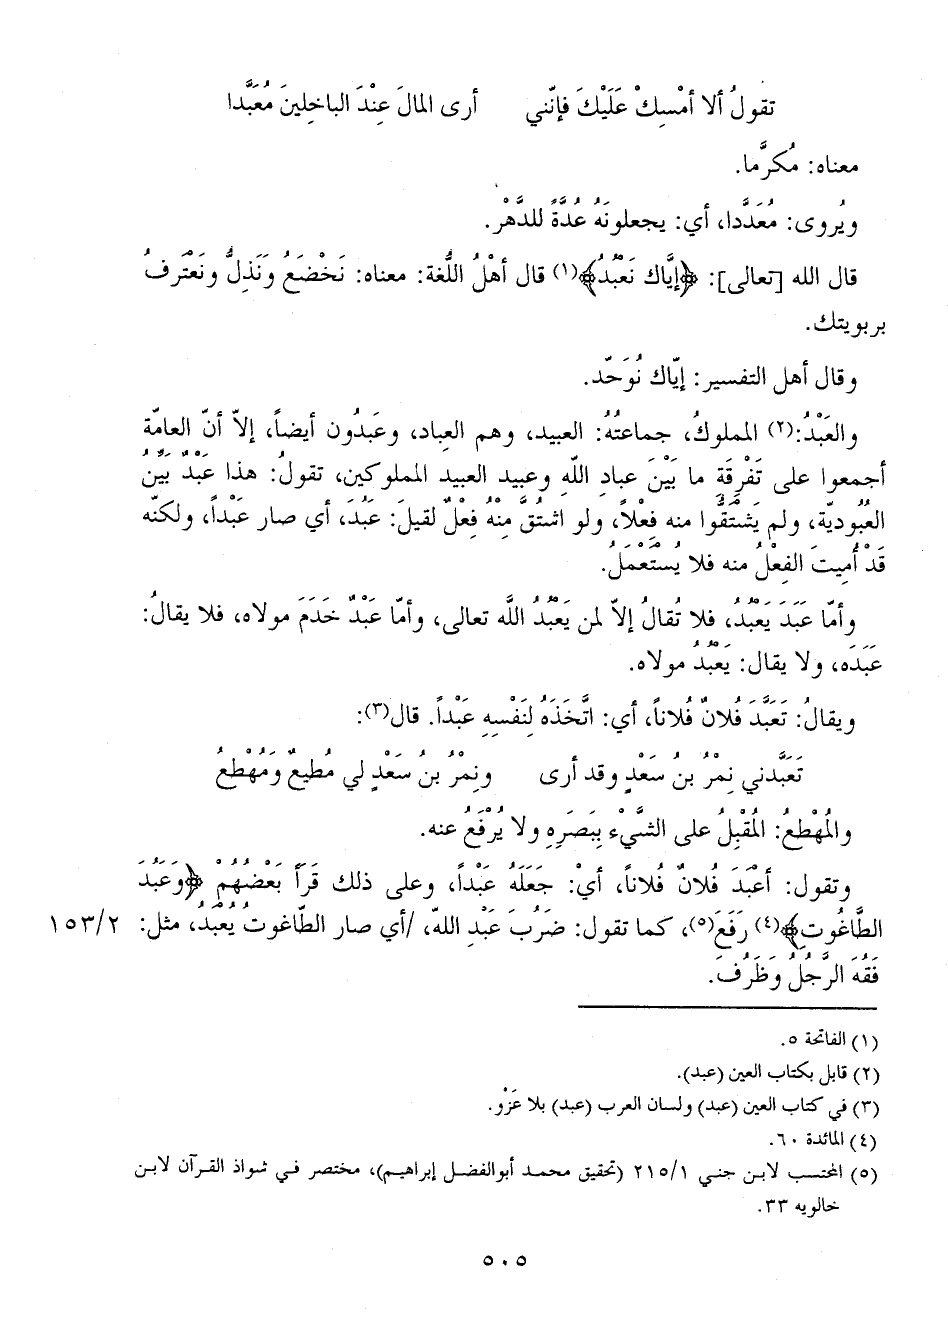 تقولُ ألا أمْسِكْ عَلَيْكَ فإنّني أرى المالَ عِنْدَ الباخِلينَ مُعَبَّدا
معناه: مُكرَّما.
ويُروى: مُعَدَّدا، أي: يجعلونَهُ عُدَّةً للدَّهْر.
قال الله [تعالى]: ﴿إيَّاك نَعْبُدُ﴾(١) قال أهْلُ اللُّغة: معناه: نَخْضَعُ وَنَذِلُّ ونَعْتَرفُ
بربوبيتك.
وقال أهل التفسير: إيّاك نُوَحِّد.
والعَبْدُ:(٢) المملوكُ، جماعتُهُ: العبيد، وهم العِباد، وعَبدُون أيضاً، إلاّ أنّ العامّة
أجمعوا على تَفْرِقَةِ ما بَيْنَ عبادِ اللَّهِ وعبيد العبيد المملوكين، تقولُ: هذا عَبْدٌ بَيِّنُ
العُبُوديّة، ولم يَشْتَقُّوا منه فِعْلاً، ولو اشتُقَّ مِنْهُ فِعْلٌ لقيلَ: عَبُدَ، أي صار عَبْداً، ولكنّه
قَدْ أُميتَ الفِعْلُ منه فلا يُسْتَعْمَلُ.
وأمّا عَبَدَ يَعْبُدُ، فلا تُقالُ إلاّ لمن يَعْبُدُ اللَّه تعالى، وأمّا عَبْدٌ خَدَمَ مولاه، فلا يقالُ:
عَبَدَه، ولا يقال: يَعْبُدُ مولاه.
ويقالُ: تَعَبَّدَ فُلانٌ فُلاناً، أي: اتَّخَذَهُ لِنَفْسِهِ عَبْداً. قال(٣):
تَعَبَّدني نِمْرُ بنُ سَعْدٍ وقد أرى ونِمْرُ بنُ سَعْدٍ لي مُطيعٌ وَمُهْطعُ
والمُهْطعُ: المُقْبِلُ على الشَّيْءِ بِبَصَرِهِ ولا يُرْفَعُ عنه.
وتقول: أعْبَدَ فُلانٌ فُلاناً، أيْ: جَعَلَهُ عَبْداً، وعلى ذلك قَرَأَ بَعْضُهُمْ ﴿وَعَبُدَ
الطَّاغُوتِ﴾(٤) رَفَعَ(٥)، كما تقول: ضَرُبَ عَبْدِ اللهّ، /أي صار الطّاغوت يُعْبَدُ، مثل: ١٥٣/٢
فَقُهَ الرَّجُلُ وَظَرُفَ.
(١) الفاتحة ٥.
(٢) قابل بكتاب العين (عبد).
(٣) في كتاب العين (عبد) ولسان العرب (عبد) بلا عَزْو.
(٤) المائدة ٦٠.
(٥) المحتسب لابن جني ٢١٥/١ (تحقيق محمد أبوالفضل إبراهيم)، مختصر في شواذ القرآن لابن
خالويه ٣٣.
٥٠٥